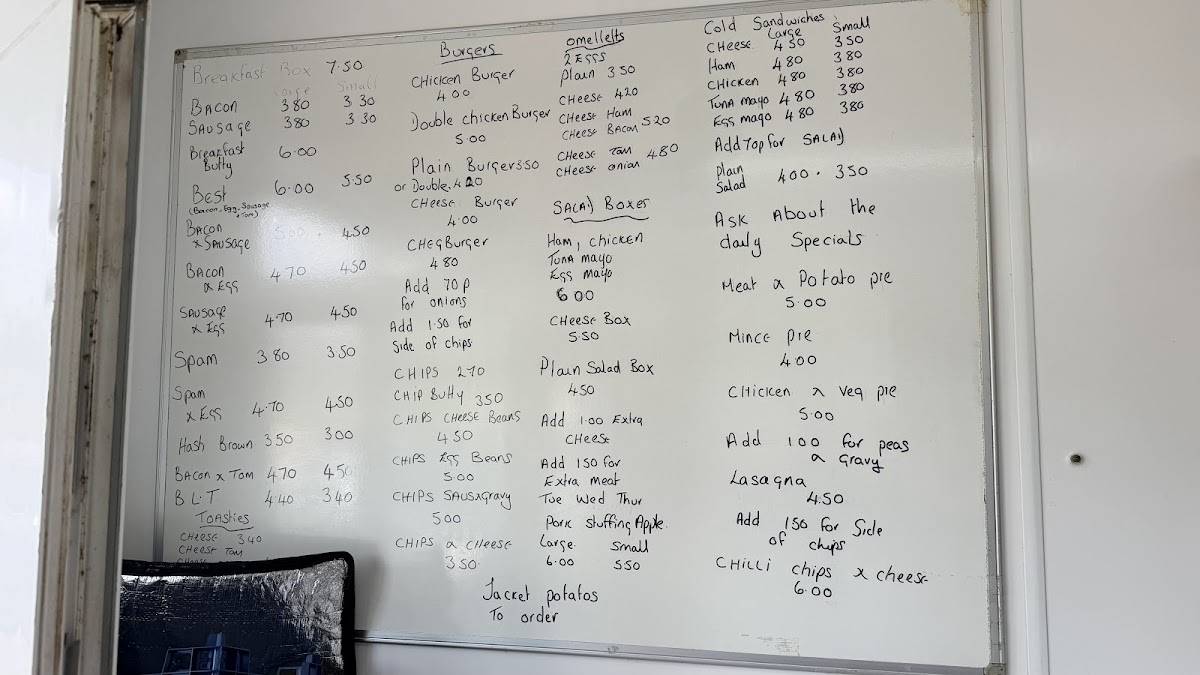 Breakfast Box 7.50
Large Small
Bacon 380 330
Sausage 380 330
Breakfast 6.00
Butty
Best 6.00 5.50
(Bacon, Egg, Sausage
+ Tom)
Bacon 500 . 450
x Sausage
Bacon 470 450
x Egg
Sausage 4.70 450
x Egg
Spam 380 350
Spam
x Egg 4.70 450
Hash Brown 350 300
Bacon x Tom 470 450
B L.T 4.40 340
Toasties
Cheese 340
Cheese Tom
Burgers
Chicken Burger
400
Double chicken Burger
5.00
Plain Burger 350
or Double. 420
Cheese Burger
4.00
CHEGBurger
480
Add 70p
for onions
Add 1.50 for
Side of chips
CHIPS 270
CHIP Butty 350
CHIPS CHEESE Beans
450
CHIPS Egg Beans
5.00
CHIPS SAUSxgravy
500
CHIPS a CHEESE
350.
omellelts
2 EGGS
Plain 350
CHEESE 420
CHEESE Ham
CHEESE Bacon 520
CHEESE Tom
CHEESE onion 480
SALAD Boxes
Ham, chicken
Tuna mayo
Egg mayo
600
CHEESE Box
5.50
Plain Salad Box
450
Add 1.00 Extra
CHEESE
Add 150 for
Extra meat
Tue Wed Thur
Pork Stuffing Apple.
Large. Small
6.00 550
Jacket potatos
To order
Cold Sandwiches
Large Small
CHEESE 450 350
Ham 480 380
CHICKEN 480 380
Tuna mayo 480 380
Egg mayo 480 380
Add 70p for SALAD
Plain
Salad 400 . 350
Ask About the
daily Specials
Meat a Potato pie
5.00
Mince pie
400
Chicken x veg pie
5.00
Add 100 for peas
a gravy
Lasagna
4.50
Add 150 for Side
of chips
CHILLI chips x cheese
6.00